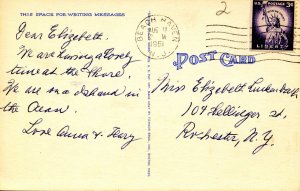 THIS SPACE FOR WRITING MESSAGES
Dear Elizabeth.
We are having a lovely
time at the shore.
We are on a Island in
the Ocean.
Love Anna & Harry
BEACH HAVEN
N. J.
1951
2
U.S. POSTAGE
3¢
LIBERTY
POST CARD
Miss Elizabeth
104 Dellinger St.
Rochester, N. Y.